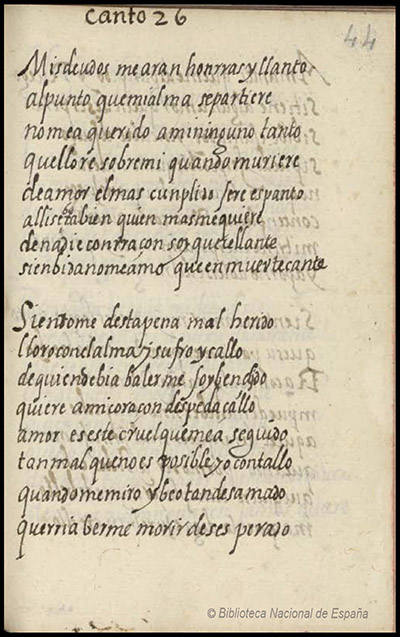 Canto 26
44
Misdeudos mearan honrras y llanto
alpunto quemialma separtiere
nomea querido amininguno tanto
quellore sobremi quando muriere
deamor elmas cunplido sere espanto
allise bien quien masmequiere
denadie con quellante
sienbidanomeamo queenmuertecante
Sientome destapena mal herido
lloroconelalma y sufro y callo
dequiendebia balerme soy
quiere amicoraçon despedaçallo
amor eseste cruelquemea seguido
tanmal quenoes posible yo contallo
quandomemiro y beotandesamado
querria berme morir deses perado
© Biblioteca Nacional de España